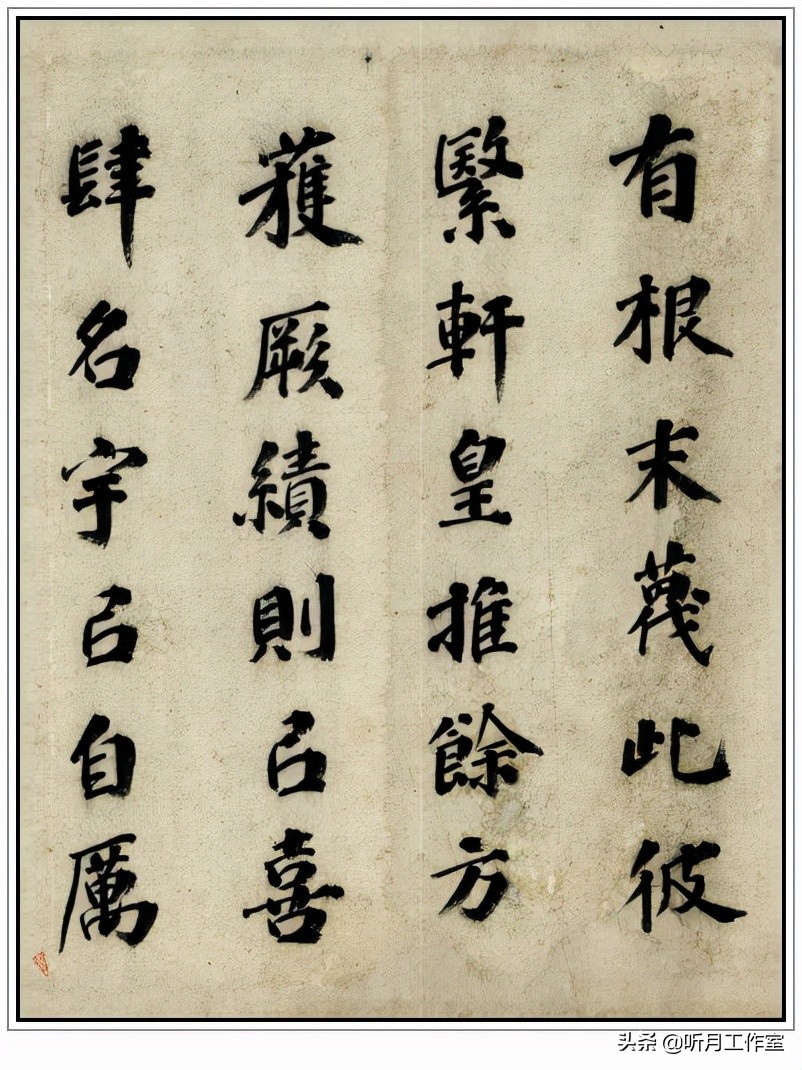 有根末蔑此彼
繄軒皇推餘方
獲厥績則以喜
肆名宇以自厲
头条 @听月工作室